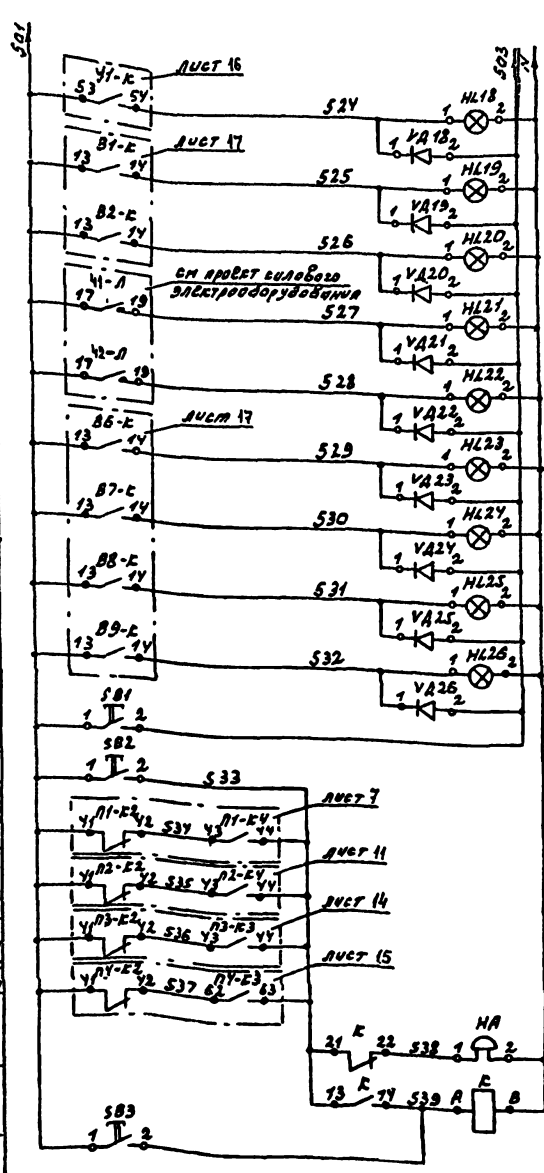 501
503
N
У1-К
ЛИСТ 16
53 54
524
1 HL18 2
1 VД18 2
В1-К
ЛИСТ 17
13 14
525
1 HL19 2
1 VД19 2
В2-К
13 14
526
1 HL20 2
1 VД20 2
Ч1-Л
см проект силового
электрооборудования
17 19
527
1 HL21 2
1 VД21 2
Ч2-Л
17 19
528
1 HL22 2
1 VД22 2
В6-К
лист 17
13 14
529
1 HL23 2
1 VД23 2
В7-К
13 14
530
1 HL24 2
1 VД24 2
В8-К
13 14
531
1 HL25 2
1 VД25 2
В9-К
13 14
532
1 HL26 2
1 VД26 2
SB1
1 2
SB2
1 2
533
лист 7
П1-К2 П1-К4
41 42 534 43 44
лист 11
П2-К2 П2-К4
41 42 535 43 44
лист 14
П3-К2 П3-К3
41 42 536 43 44
лист 15
П4-К2 П4-К3
41 42 537 62 63
К
21 22 538 1 НА 2
К
13 14 539 А К В
SB3
1 2